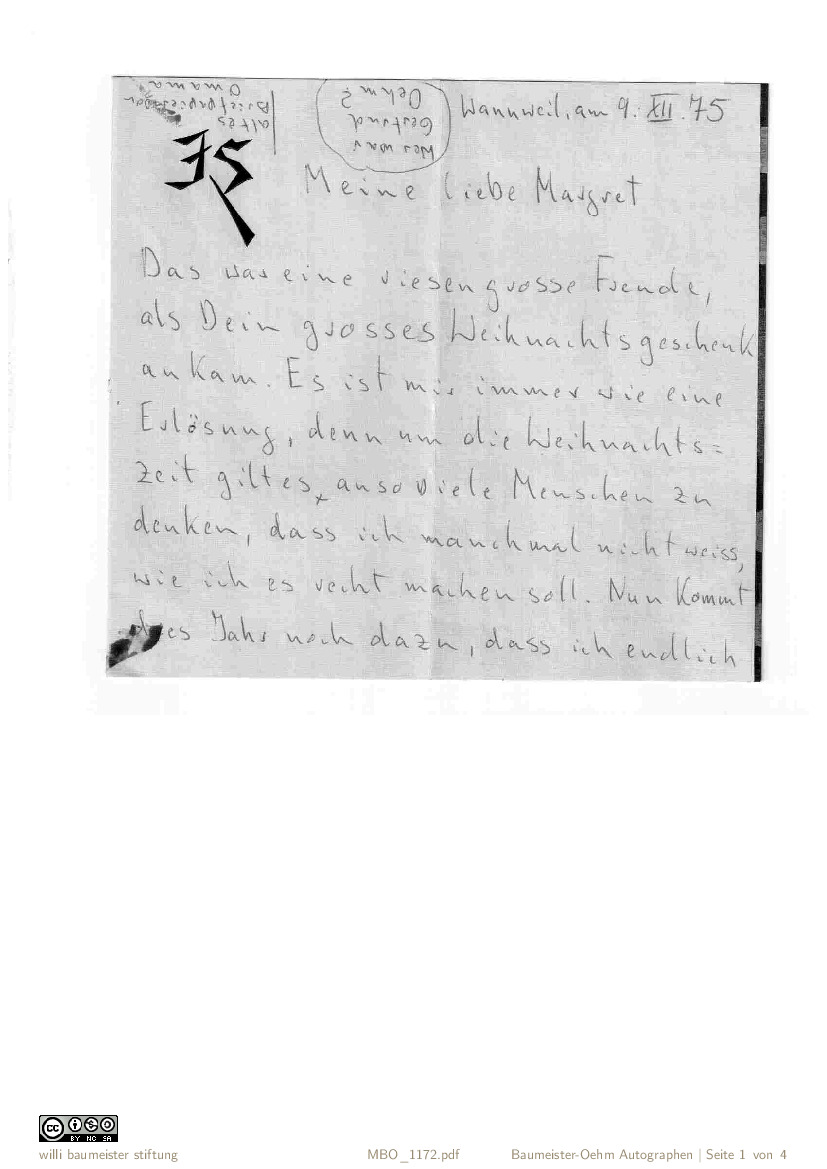 altes
Briefpapier von
Omama
Wer war
Gertrud
Oehm?
Wannweil, am 9. XII. 75
Meine liebe Margret
Das war eine riesengrosse Freude,
als Dein grosses Weihnachtsgeschenk
ankam. Es ist mir immer wie eine
Erlösung, denn um die Weihnachts=
zeit gilt es, an so viele Menschen zu
denken, dass ich manchmal nicht weiss,
wie ich es recht machen soll. Nun kommt
dies Jahr noch dazu, dass ich endlich
CC BY NC SA
willi baumeister stiftung MBO_1172.pdf Baumeister-Oehm Autographen | Seite 1 von 4